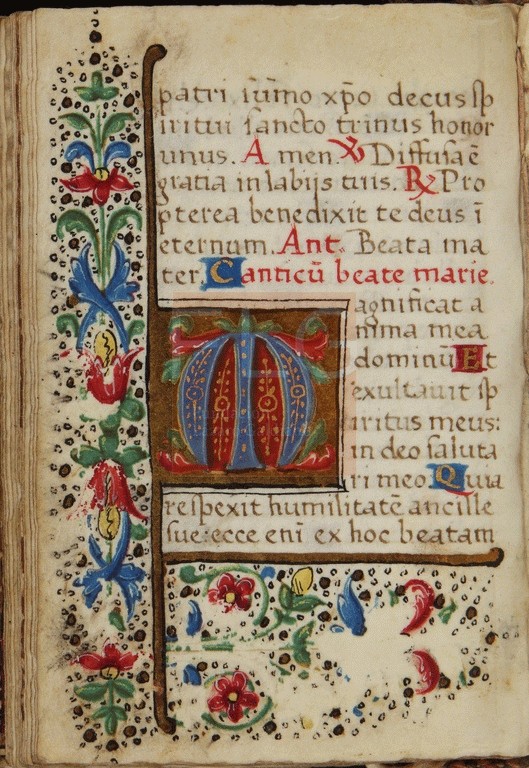 patri sūmo xp̄o decus sp
iritui sancto trinus honor
unus. A men. ℣ Diffusa ē
gratia in labijs tuis. ℟ Pro
pterea benedixit te deus ī
eternum. Ant. Beata ma
ter. Canticū beate marie.
Magnificat a
nima mea
dominū Et
exultauit sp
iritus meus:
in deo saluta
ri meo. Quia
respexit humilitatē ancille
sue: ecce enī ex hoc beatam